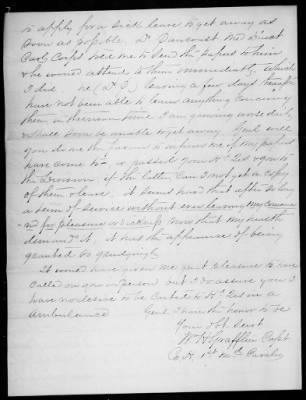 to apply for a sick leave to get away as
soon as possible. Dr Med Direct
Cavly Corps told me to send the papers to him
& he would attend to them immediately which
I did he leaving a few days
have not been able to learn anything concerning
them in the mean time I am growing worse daily
& shall soon be unable to get away. Genl will
you do me the favor to inform me if my papers
have come to or passed your Hd Qrs up to
the Division if the latter can I not get a copy
of them & leave, it seems hard that after so long
a term of service without ever leaving my comma
nd for pleasure or sickness now that my health
demands it, it has the appearance of being
granted so grudgingly
It would have given me great pleasure to have
called on you in person but I do assure you I
have no desire to be carted to Hd Qrs in a
ambulance Genl I have the honor to be
Your obt Servt
W H Grafflin Capt
Co H, 1st Md Cavalry